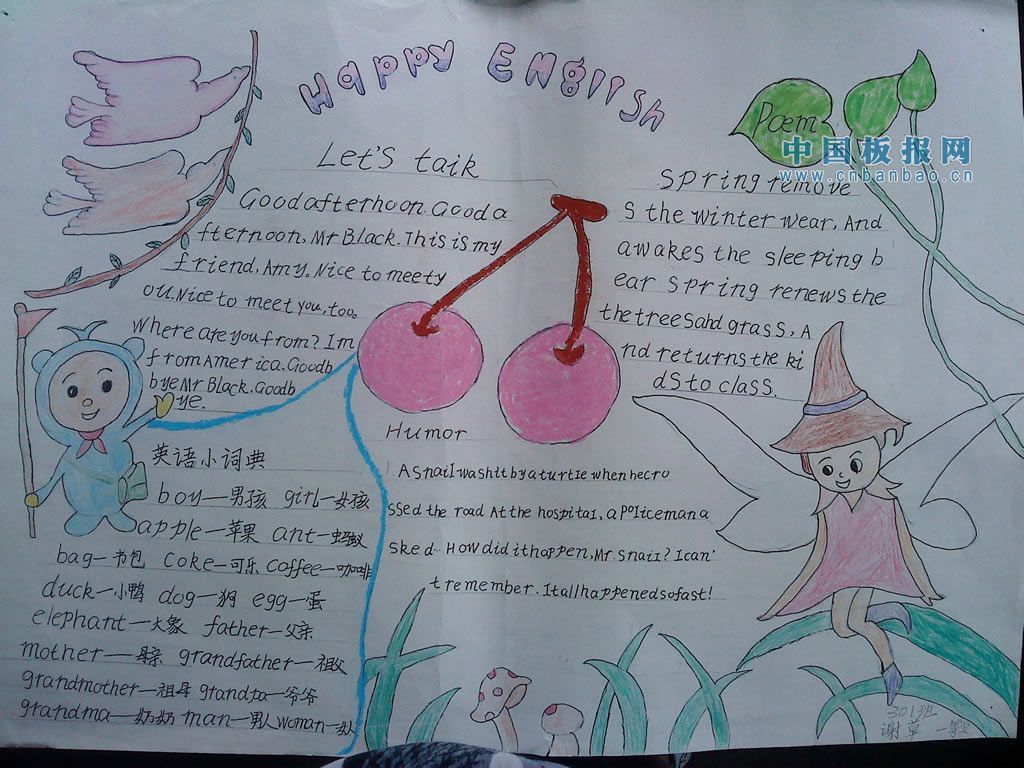 Happy English
Let's taik
Good afterhoon. Good a
fternoon, Mr Black. This is my
friend, Amy. Nice to meet y
ou. Nice to meet you, too.
Where are you from? I'm
from America. Goodb
bye Mr Black. Goodb
ye.
英语小词典
boy—男孩 girl—女孩
apple—苹果 ant—蚂蚁
bag—书包 Coke—可乐 Coffee—咖啡
duck—小鸭 dog—狗 egg—蛋
elephant—大象 father—父亲
mother—母亲 grandfather—祖父
grandmother—祖母 grandpa—爷爷
grandma—奶奶 man—男人 woman—女人
Poem
中国板报网
www.cnbanbao.cn
Spring remove
s the winter wear, And
awakes the sleeping b
ear spring renews the
the trees ahd grass, A
nd returns the ki
ds to class.
Humor
A snail was hit by a turtle when he cro
ssed the road At the hospital, a policeman a
sked. How did it happen, Mr. Snail? I can'
t remember. It all happened so fast!
301班
谢草一